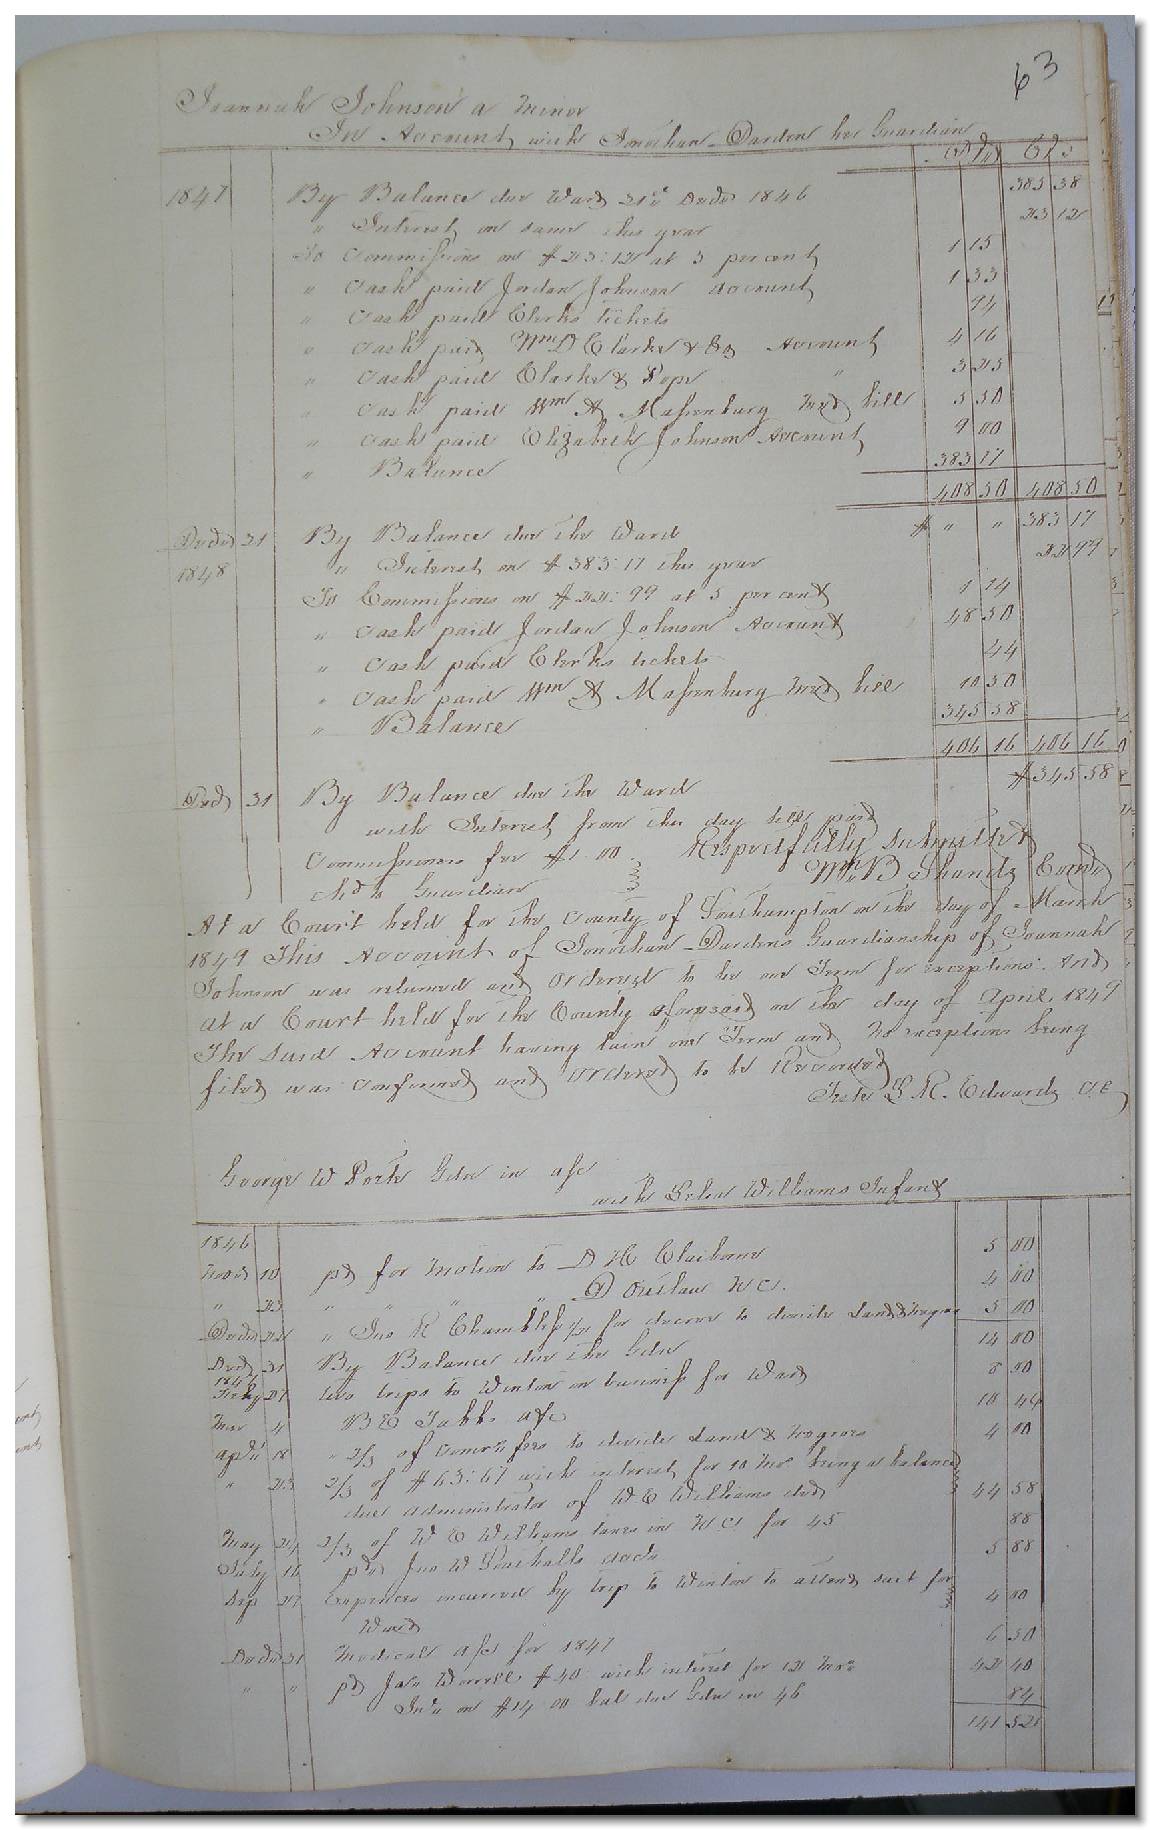 63
Joannah Johnson a minor
In Account with Jonathan Darden her Guardian
Drs Crs
1847 By Balance due Ward 31st Decr 1846 385 38
" Interest on same this year 23 12
To Commissions on $23:12 at 5 per cent 1 15
" Cash paid Jordan Johnson Account 1 33
" Cash paid Clerks tickets 94
" Cash paid Wm D Clarke & Co Account 4 16
" Cash paid Clarke & Pope " 3 25
" Cash paid Wm A Massenburg Med bill 5 50
" Cash paid Elizabeth Johnson Account 9 00
" Balance 383 17
408 50 408 50
Decr 31 By Balance due the Ward $ " " 383 17
1848 " Interest on $383:17 this year 22 99
To Commissions on $22:99 at 5 per cent 1 14
" Cash paid Jordan Johnson Account 48 50
" Cash paid Clerks tickets 44
" Cash paid Wm A Massenburg Med bill 10 50
" Balance 345 58
406 16 406 16
Decr 31 By Balance due the Ward $345 58
with Interest from this day till paid
Commissioners fee $1.00 Respectfully Submitted
Chd to Guardian Wm B Shands Comr
At a Court held for the County of Southampton on the day of March
1849 This Account of Jonathan Dardens Guardianship of Joannah
Johnson was returned and Ordered to lie one Term for exceptions. And
at a Court held for the County aforesaid on the day of April, 1849
The said Account having lain one Term and no exceptions being
filed was confirmed and Ordered to be Recorded
Teste L R. Edwards CC
George W Gdn in a/c
with Williams Infant
1846
Novr 10 pd for Motion to D H Claiborne 5 00
" 23 " " " " D Outlaw N C. 4 00
Decr 22 " Jno R Chambliss for decree to divide Land & negroes 5 00
14 00
Decr 31 By Balance due the Gdn
1846
Feby 27 two trips to Winton on business for Ward 8 00
Mar 4 Tubbs a/c 10 44
April 18 " 2/3 of Comrs fees to divide Land & negroes 4 00
" 23 2/3 of $63:67 with interest for 10 Mos being a balance
due administrator of W E Williams decd 44 58
May 24 2/3 of W E Williams taxes in N C for 45 88
July 16 pd Jno W Southalls acct 5 88
Sep 27 Expences incurred by trip to Winton to attend suit for
Ward 4 00
Decr 31 Medical a/c for 1847 6 50
" " pd Jas Worrell $40 with interest for 12 Mos 42 40
Int on $14.00 bal due Gdn in 46 84
141 52